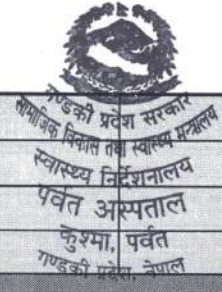 गण्डकी प्रदेश सरकार
सामाजिक विकास तथा स्वास्थ्य मन्त्रालय
स्वास्थ्य निर्देशनालय
पर्वत अस्पताल
कुश्मा, पर्वत
गण्डकी प्रदेश, नेपाल